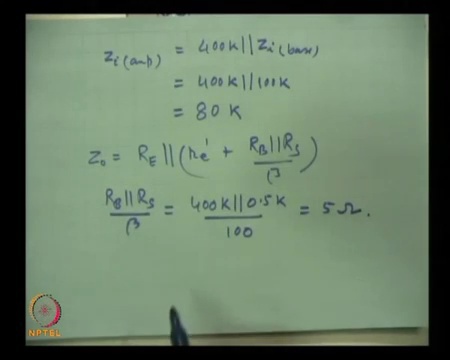 Zi(amp) = 400K || Zi(base)
= 400K || 100K
= 80 K
Zo = RE || (re' + RB||RS / β)
RB||RS / β = 400K || 0.5K / 100 = 5 Ω.
NPTEL